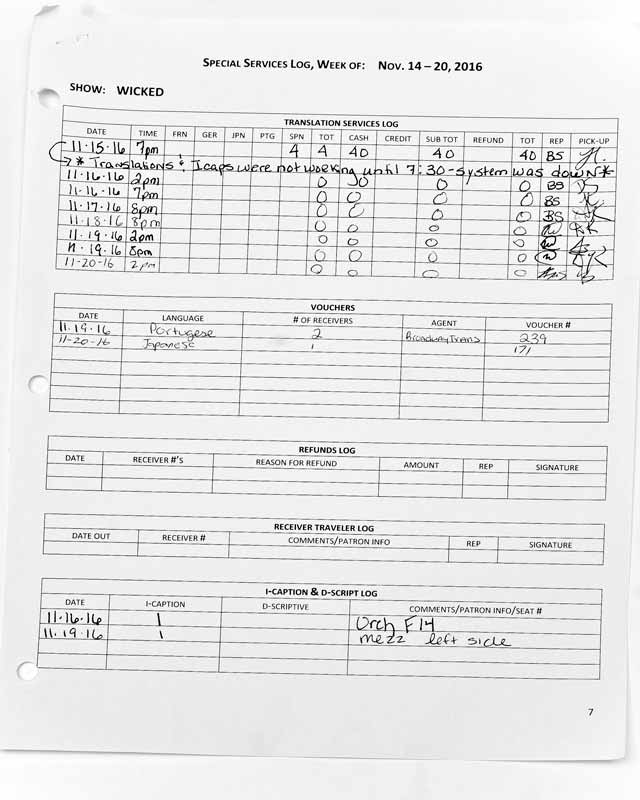 SPECIAL SERVICES LOG, WEEK OF: NOV. 14 – 20, 2016
SHOW: WICKED
TRANSLATION SERVICES LOG
DATE TIME FRN GER JPN PTG SPN TOT CASH CREDIT SUB TOT REFUND TOT REP PICK-UP
11-15-16 7pm 4 4 40 40 40 BS
* Translations & Icaps were not working until 7:30-system was down *
11-16-16 2pm 0 0 0 0 BS
11-16-16 7pm 0 0 0 0 BS
11-17-16 8pm 0 0 0 0 BS
11-18-16 8pm 0 0 0 0
11-19-16 2pm 0 0 0 0
11-19-16 8pm 0 0 0 0
11-20-16 2pm 0 0 0 0
VOUCHERS
DATE LANGUAGE # OF RECEIVERS AGENT VOUCHER #
11-19-16 Portugese 2 BroadwayTrans 239
11-20-16 Japanese 1 171
REFUNDS LOG
DATE RECEIVER #'S REASON FOR REFUND AMOUNT REP SIGNATURE
RECEIVER TRAVELER LOG
DATE OUT RECEIVER # COMMENTS/PATRON INFO REP SIGNATURE
I-CAPTION & D-SCRIPT LOG
DATE I-CAPTION D-SCRIPTIVE COMMENTS/PATRON INFO/SEAT #
11-16-16 1 Orch F14
11-19-16 1 mezz left side
7